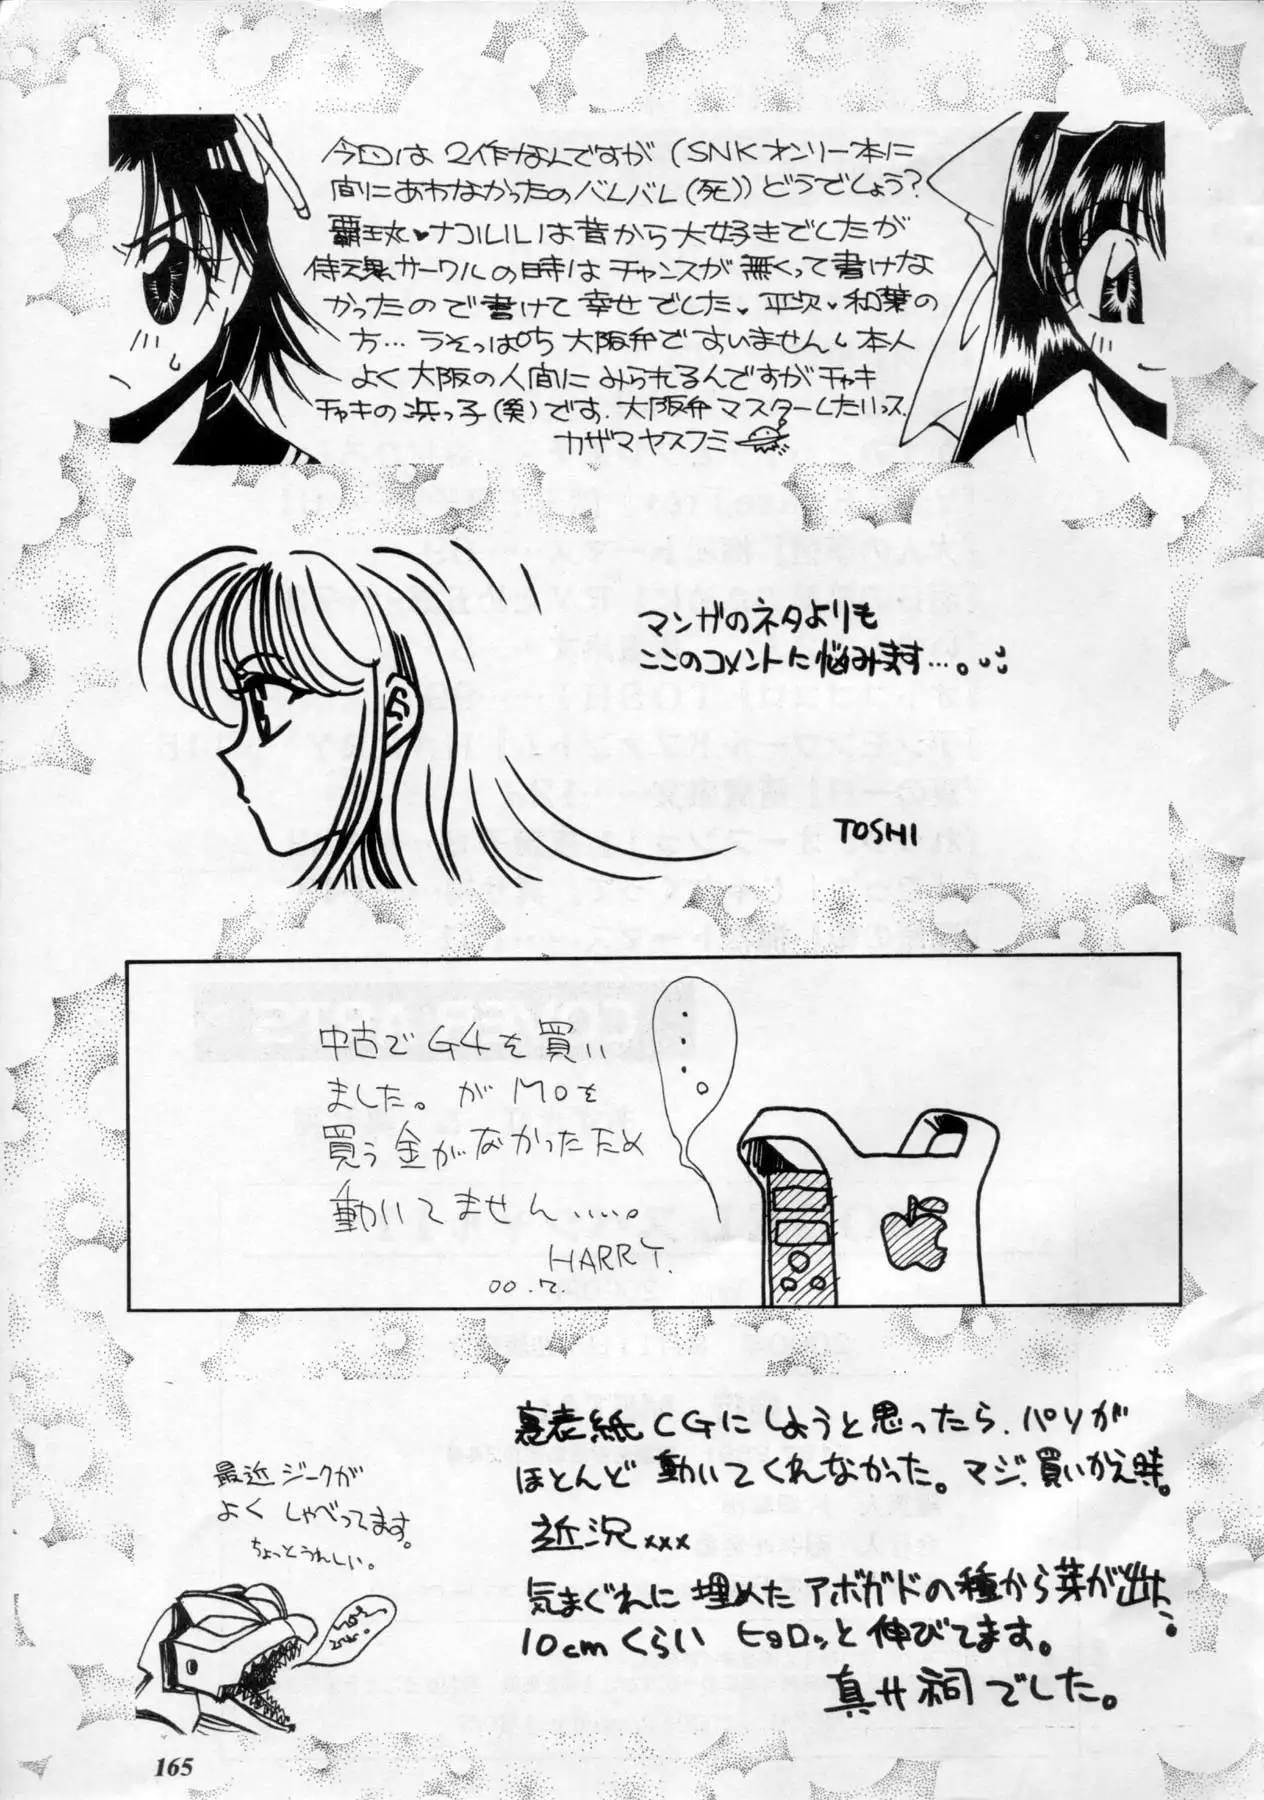 今回は2作なんですが(SNKオンリー本に
間にあわなかったのバレバレ(死))どうでしょう?
覇王丸♥ナコルルは昔から大好きでしたが
侍魂サークルの時はチャンスが無くって書けな
かったので書けて幸せでした♥平次♥和葉の
方…うそっぱち大阪弁ですいません 本人
よく大阪の人間にみられるんですがチャキ
チャキの浜っ子(笑)です.大阪弁マスターしたいっス.
カザマヤスフミ
マンガのネタよりも
ここのコメントに悩みます…。
TOSHI
中古でG4を買い
ました。がMOを
買う金がなかったため
動いてません.....。
HARRY.
00.7.
裏表紙CGにしようと思ったら、パソが
ほとんど動いてくれなかった。マジ、買いかえ時。
近況xxx
気まぐれに埋めたアボガドの種から芽が出た、
10cmくらいヒョロッと伸びてます。
真井祠でした。
最近ジークが
よくしゃべってます。
ちょっとうれしい。
165